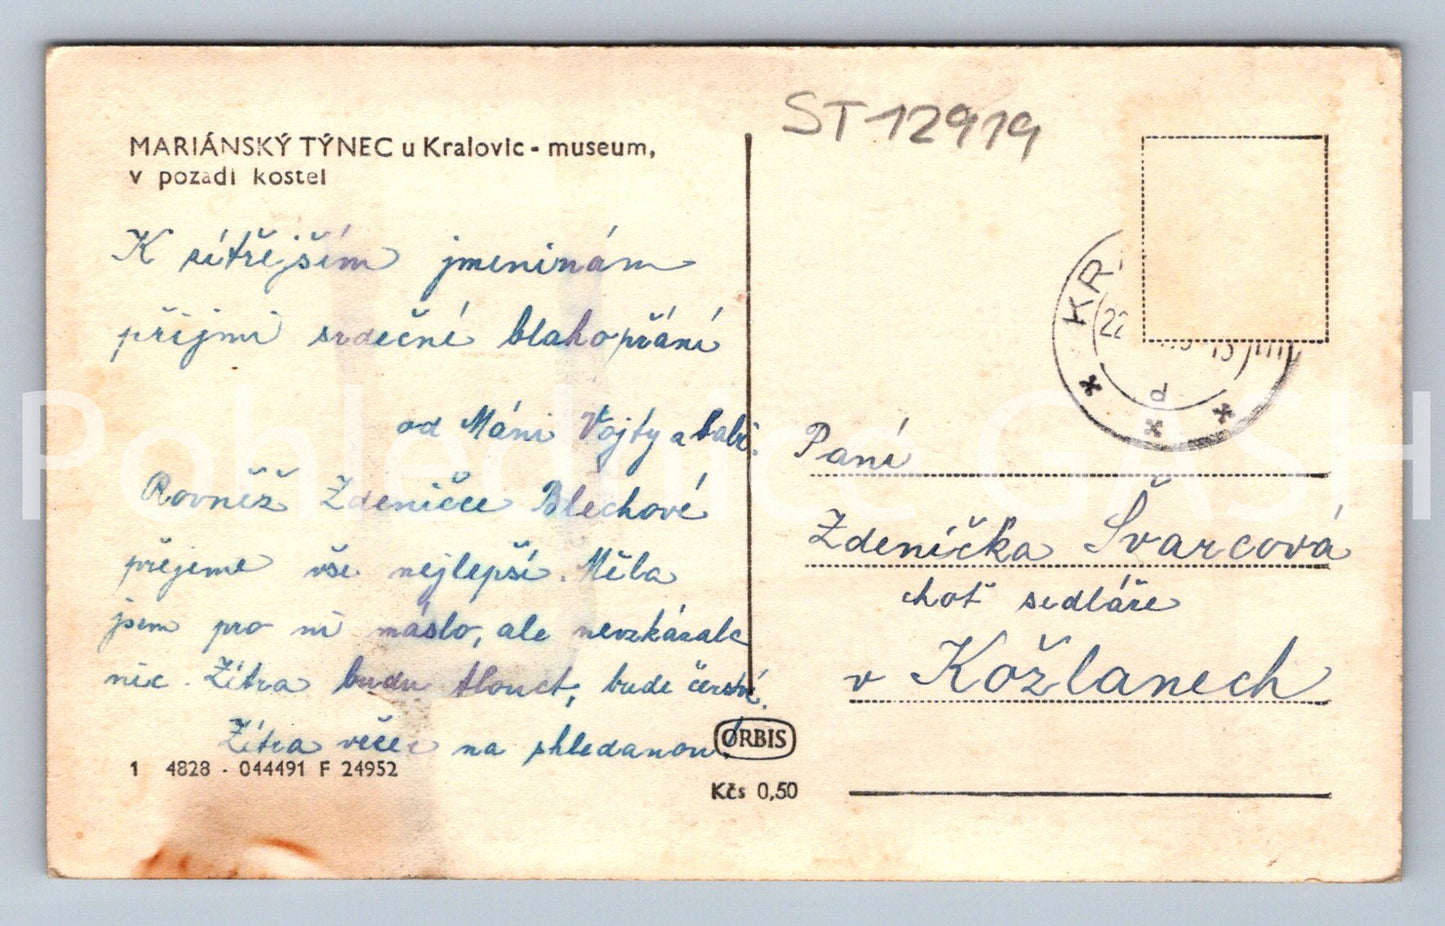 MARIÁNSKÝ TÝNEC u Kralovic - museum,
v pozadí kostel
ST 12919
K zítřejším jmeninám
přijmi srdečné blahopřání
od Máni Vojty a babi.
Rovněž Zdeničce Blechové
přejeme vše nejlepší. Měla
jsem pro ni máslo, ale nevzkázala
nic. Zítra budu tlouct, bude čerstvé.
Zítra večer na shledanou!
1 4828 - 044491 F 24952
ORBIS
Kčs 0,50
KR
22
d
Paní
Zdenička Švarcová
choť sedláře
v Kožlanech
Pohlednice GASH